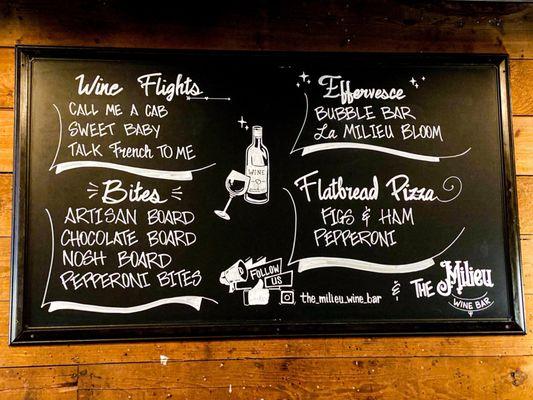 Wine Flights
CALL ME A CAB
SWEET BABY
TALK French TO ME
Bites
ARTISAN BOARD
CHOCOLATE BOARD
NOSH BOARD
PEPPERONI BITES
WINE
FOLLOW
US
the_milieu_wine_bar
Effervesce
BUBBLE BAR
La MILIEU BLOOM
Flatbread Pizza
FIGS & HAM
PEPPERONI
& THE Milieu
WINE BAR